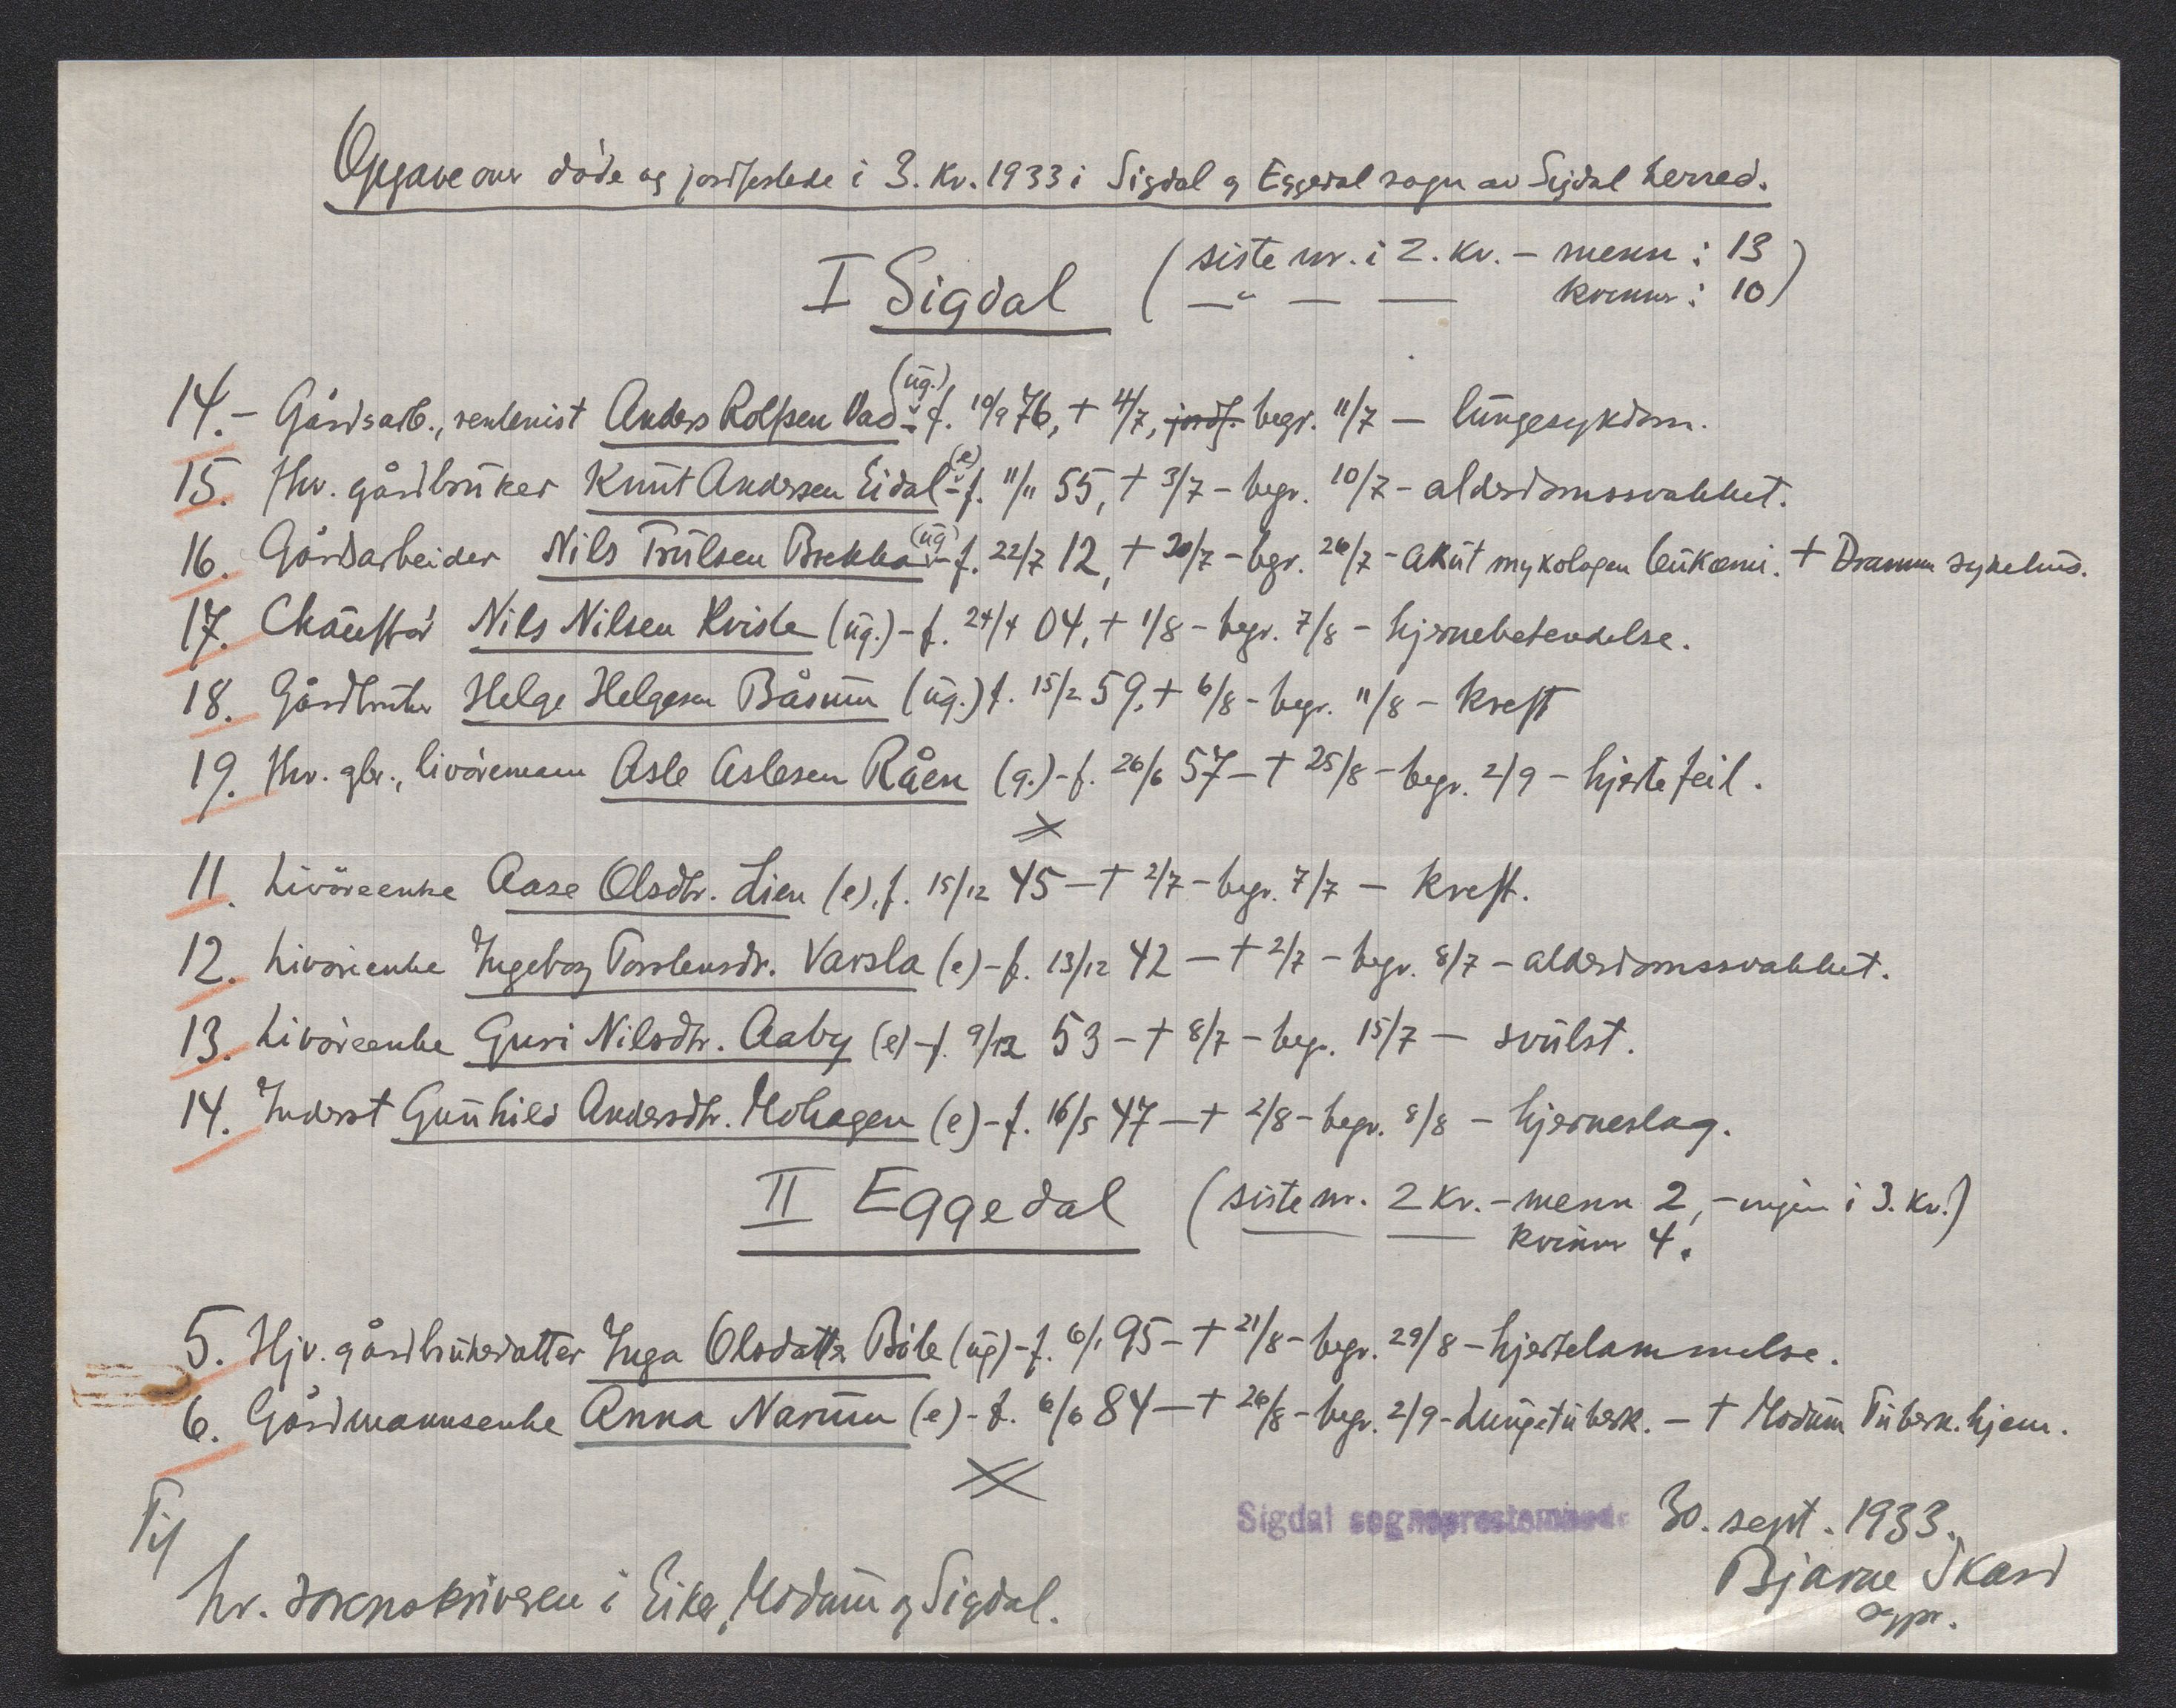 Opgave over døde og jordfestede i 3. kv. 1933 i Sigdal og Eggedal sogn av Sigdal herred.
I Sigdal (siste nr. i 2. kv. – menn : 13
—"— — kvinner : 10)
14. – Gårdsarb., rentenist Anders Rolfsen Vad (ug.) – f. 10/9 76, + 4/7, jordf. begr. 11/7 — lungesykdom.
15. Fhv. gårdbruker Knut Andersen Eidal (e) – f. 11/11 55, + 3/7 – begr. 10/7 – alderdomssvakhet.
16. Gårdsarbeider Nils Trulsen Brekka (ug) – f. 22/7 12, + 20/7 – begr. 26/7 – akut mykologen leukæmi. + Dramm sykehus.
17. Chauffør Nils Nilsen Kviste (ug.) – f. 24/4 04, + 1/8 – begr. 7/8 – hjernebetendelse.
18. Gårdbruker Helge Helgesen Båsum (ug.) f. 15/2 59, + 6/8 – begr. 11/8 – kreft
19. Fhv. gbr., livøremann Asle Aslesen Råen (g.) – f. 26/6 57 – + 25/8 – begr. 2/9 – hjertefeil.
11. Livøreenke Aase Olsdtr. Lien (e), f. 15/12 45 – + 2/7 – begr. 7/7 – kreft.
12. Livøreenke Ingeborg Torstensdr. Varsla (e) – f. 13/12 42 – + 2/7 – begr. 8/7 – alderdomssvakhet.
13. Livøreenke Guri Nilsdtr. Aaby (e) – f. 9/12 53 – + 8/7 – begr. 15/7 – svulst.
14. Inderst Gunhild Andersdtr. Mohagen (e) – f. 16/5 47 – + 2/8 – begr. 8/8 – hjerneslag.
II Eggedal (siste nr. 2 kv. – menn 2, – ingen i 3. kv.)
— — kvinner 4.
5. Hjv. gårdbrukerdatter Inga Olsdatter Bøle (ug) – f. 6/1 95 – + 21/8 – begr. 29/8 – hjertelammelse.
6. Gårdmannsenke Anna Narum (e) – f. 6/6 84 – + 26/8 – begr. 2/9 – Lungetuberk. – + Modum Tuberk. hjem.
Sigdal sogneprestembede 30. sept. 1933.
Til Bjarne Skard
hr. sorenskriveren i Eiker, Modum og Sigdal. sogpr.